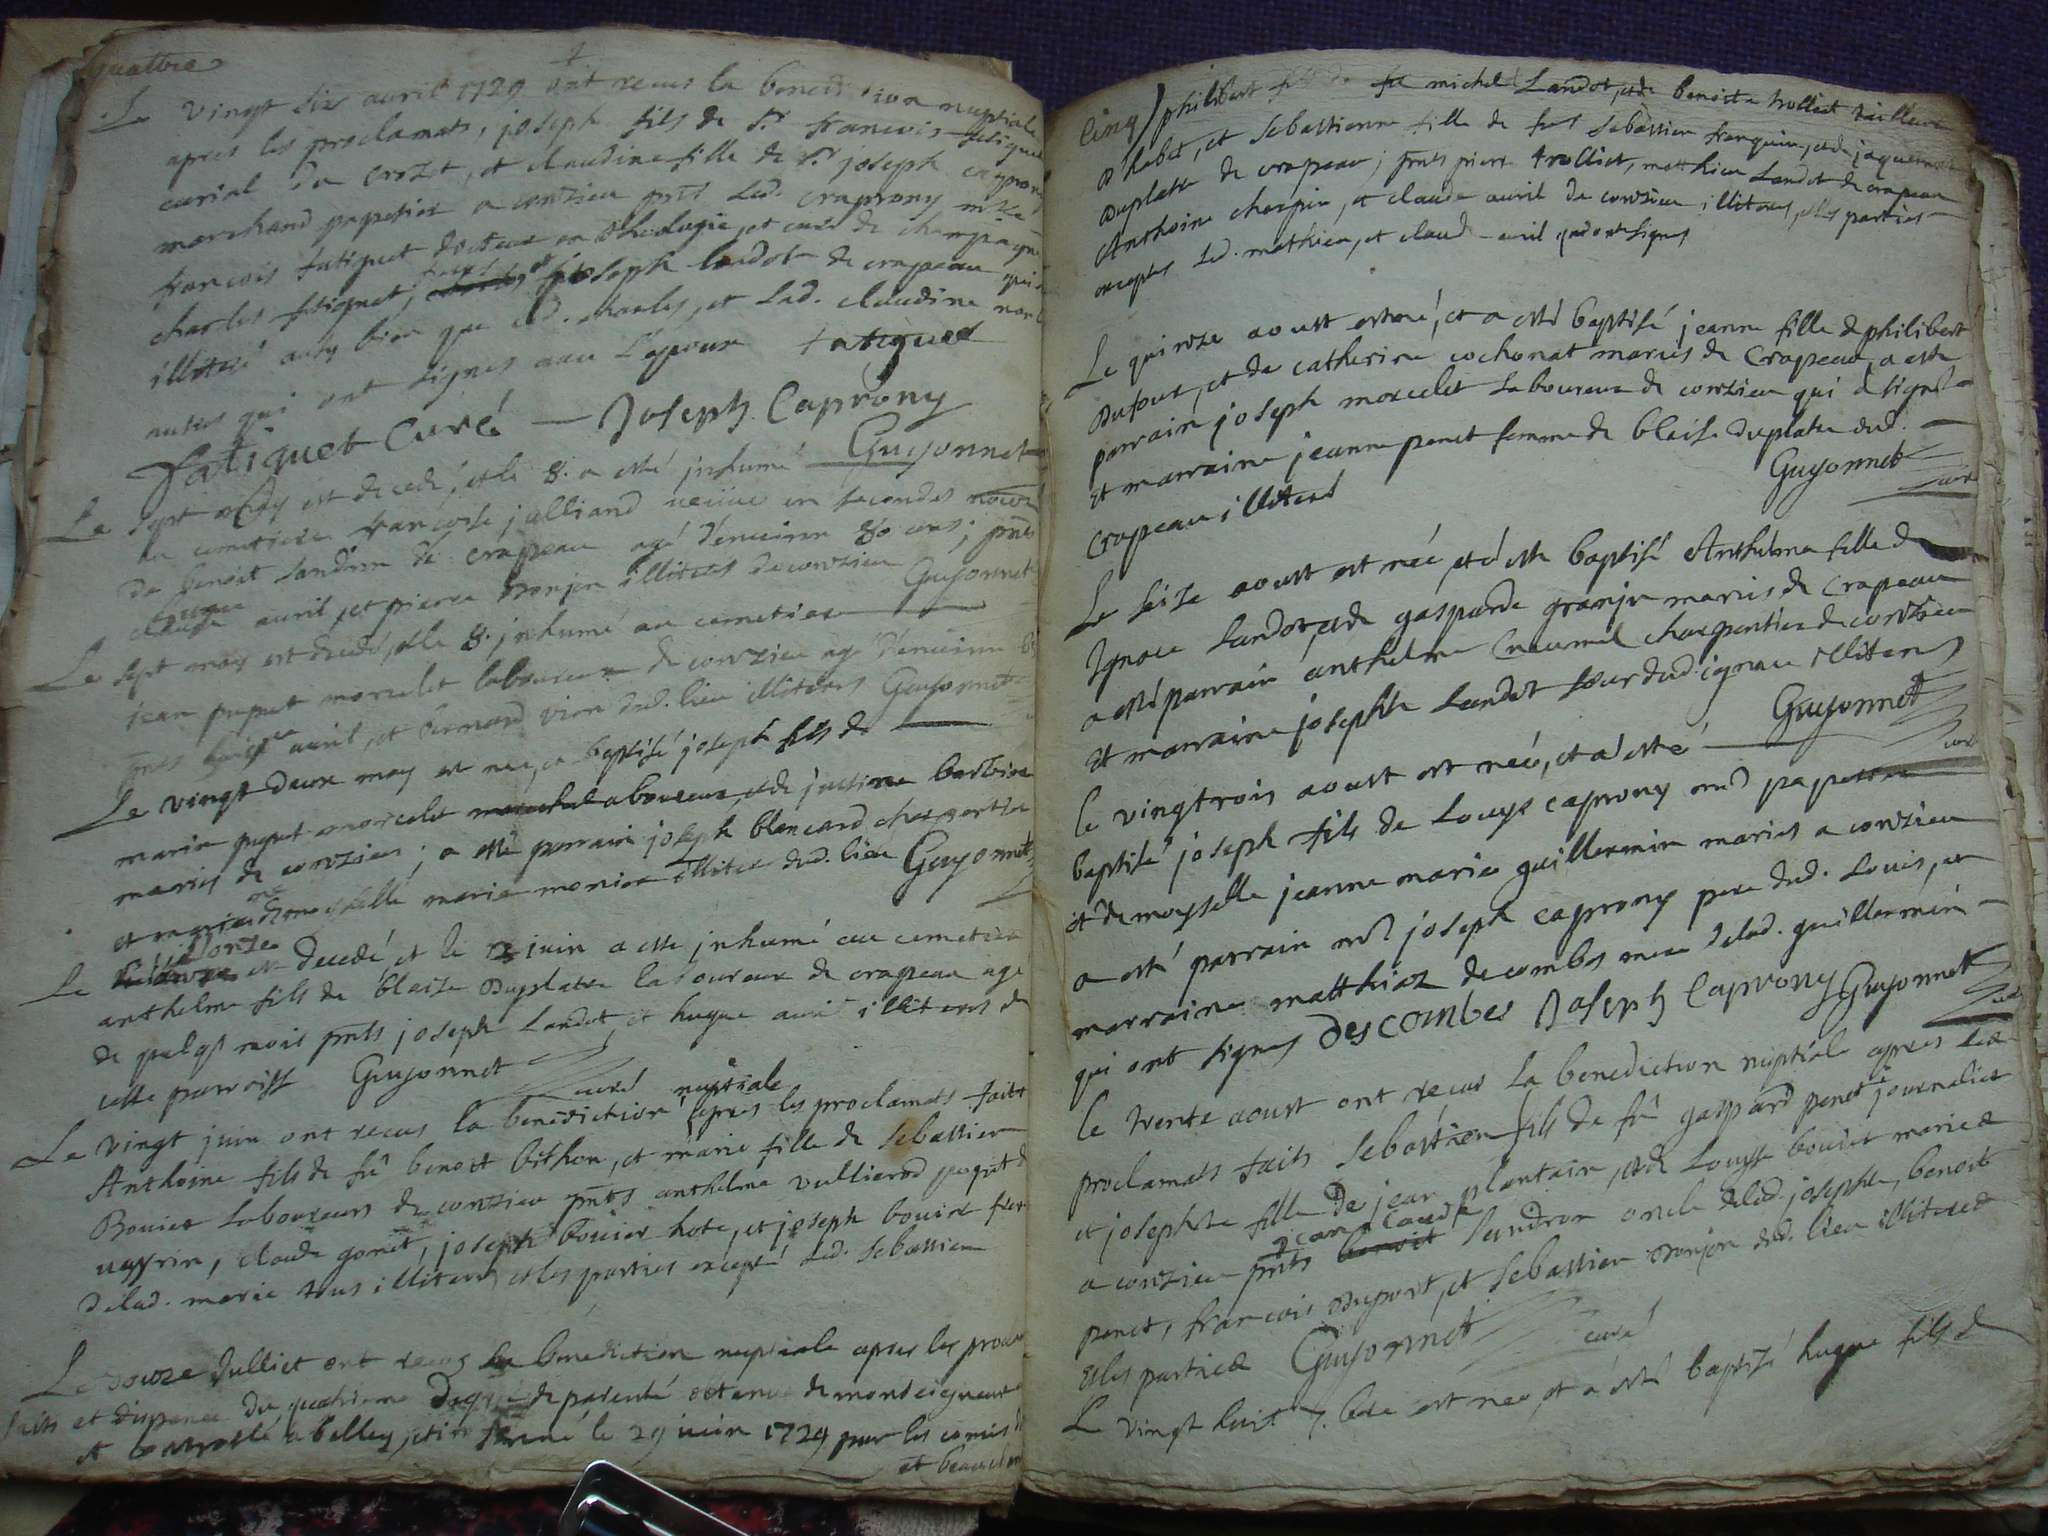 quattre
Le vingt six avril 1729 ont receus la benediction nuptiale
apres les proclamats, joseph fils de Sr. francois fatiguet
curial du crozet, et claudine fille de Sr. joseph caprony
marchand papetier a conzieu pnts led. caprony mre
francois fatiguet docteur en theologie, et curé de champagne
charles fatiguet, joseph landot de crapeau qui
illiteré aussy bien que led. charles, et lad. claudine non les
autres qui ont signes avec l'epoux fatiguet
Fatiguet Curé — Joseph Caprony
Guyonnet
Le sept may est decedé, et le 8. a esté inhumé
au cemetiere francoise julliand veüve en secondes noces
de benoit landrin de crapeau agé d'environ 80 ans; pnts
claude avril, et pierre monjon illiterés de conzieu Guyonnet
Le sept may est decedé, et le 8. inhumé au cemetiere
jean puput morcelet laboureur de conzieu agé d'environ
pnts avril, et bernard vion dud. lieu illiterés Guyonnet
Le vingt deux may est nee, a baptisé joseph fils de
marin puput morcelet laboureur, et de justine
maries de conzieu; a esté parrain joseph blancard charpentier
et marraine maria illitere dud. lieu Guyonnet
Le onze est decedé et le juin a esté inhumé au cemetiere
anthelme fils de blaise duplatre laboureur de crapeau agé
de quelqs mois pnts joseph landot, et hugue avril illiteres de
cette parroisse Guyonnet curé
Le vingt juin ont receus la benediction nuptiale apres les proclamats faits
Anthoine fils de fû benoit bithon, et marie fille de sebastien
Bouvier laboureurs de conzieu pnts anthelme vullierod
veyrin, claude gonet, joseph bouvier hote, et joseph bouvier frere
delad. marie tous illiteres et les parties excepté led. sebastien
Le douze Julliet ont receus la benediction nuptiale apres les procla
faits et dispense du quatrieme degré de parenté obtenue de monseigneur
et controslé a belley, le 29 juin 1729 par les comis
et
cinq philibert fils de fû michel Landot, et de benoite trolliet tailleur
d'habit, et sebastienne fille de fût sebastien franquin, et de jaqueme
duplatre de crapeau; pnts pierre trolliet, matthieu landot de crapeau
Anthoine cherpin, et claude avril de conzieu illiteres, et les parties
exceptes led. mathieu, et claude avril qui ont signes
Le quinze aoust est né, et a esté baptisé jeanne fille de philibert
Dufour, et de catherine cochonat maries de Crapeau, a esté
parrain joseph morcelet laboureur de conzieu qui a signé
Et marraine jeanne penet femme de blaise duplatre dud.
crapeau illiteré Guyonnet curé
Le seize aoust est née, et a esté baptisé Anthelma fille de
Ignace landot, et de gasparde granju maries de Crapeau
a esté parrain anthelme charpentier de conzieu
Et marraine josephte landot soeur dud. ignace illiteres
Guyonnet curé
le vingtrois aoust est née, et a esté
baptisé joseph fils de Louys caprony md papetier
et demoyselle jeanne marie guillermin maries a conzieu
a esté parrain md joseph caprony pere dud. Louis, et
marraine matthiaz decombes mere delad. guillermin
qui ont signes Descombes Joseph Caprony Guyonnet
curé
le trente aoust ont receus la benediction nuptiale apres les
proclamats faits Sebastien fils de fû gaspard penet journalier
et josephte fille de jean plantain, et de Louyse bouvier maries
a conzieu pnts jean claude landron oncle delad. josephte, benoit
penet, francois duport, et sebastien monjon dud. lieu illiteres
et les parties Guyonnet curé
Le vingt huit 7.bre est nee, et a esté baptisé hugue fils de